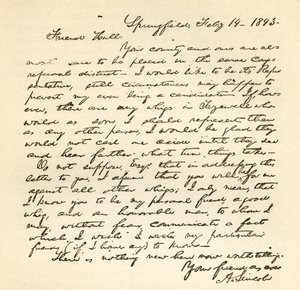 Springfield, Feby 14 - 1843.
Friend Hull
Your county and ours are al-
most sure to be placed in the same Cong-
ressional district - I would like to be its Repre-
sentative, still circumstances may happen to
prevent my even being a candidate - If, how-
ever, there are any whigs in Tazewell who
would as soon I should represent them
as any other person, I would be glad they
would not cast me aside until they see
and hear farther what turn things take -
Do not suppose, Esqr. that in addressing this
letter to you, I assume that you will be for me
against all other whigs; I only mean, that
I know you to be my personal friend, a good
whig, and an honorable man, to whom I
may, without fear, communicate a fact
which I wish my particular
friends (if I have any) to know -
There is nothing new here now worth telling.
Your friend, as ever
A. Lincoln